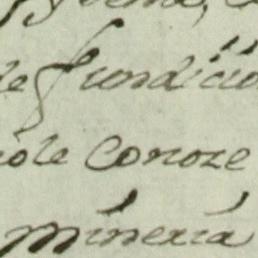 de fundicio
ole conoze
minería